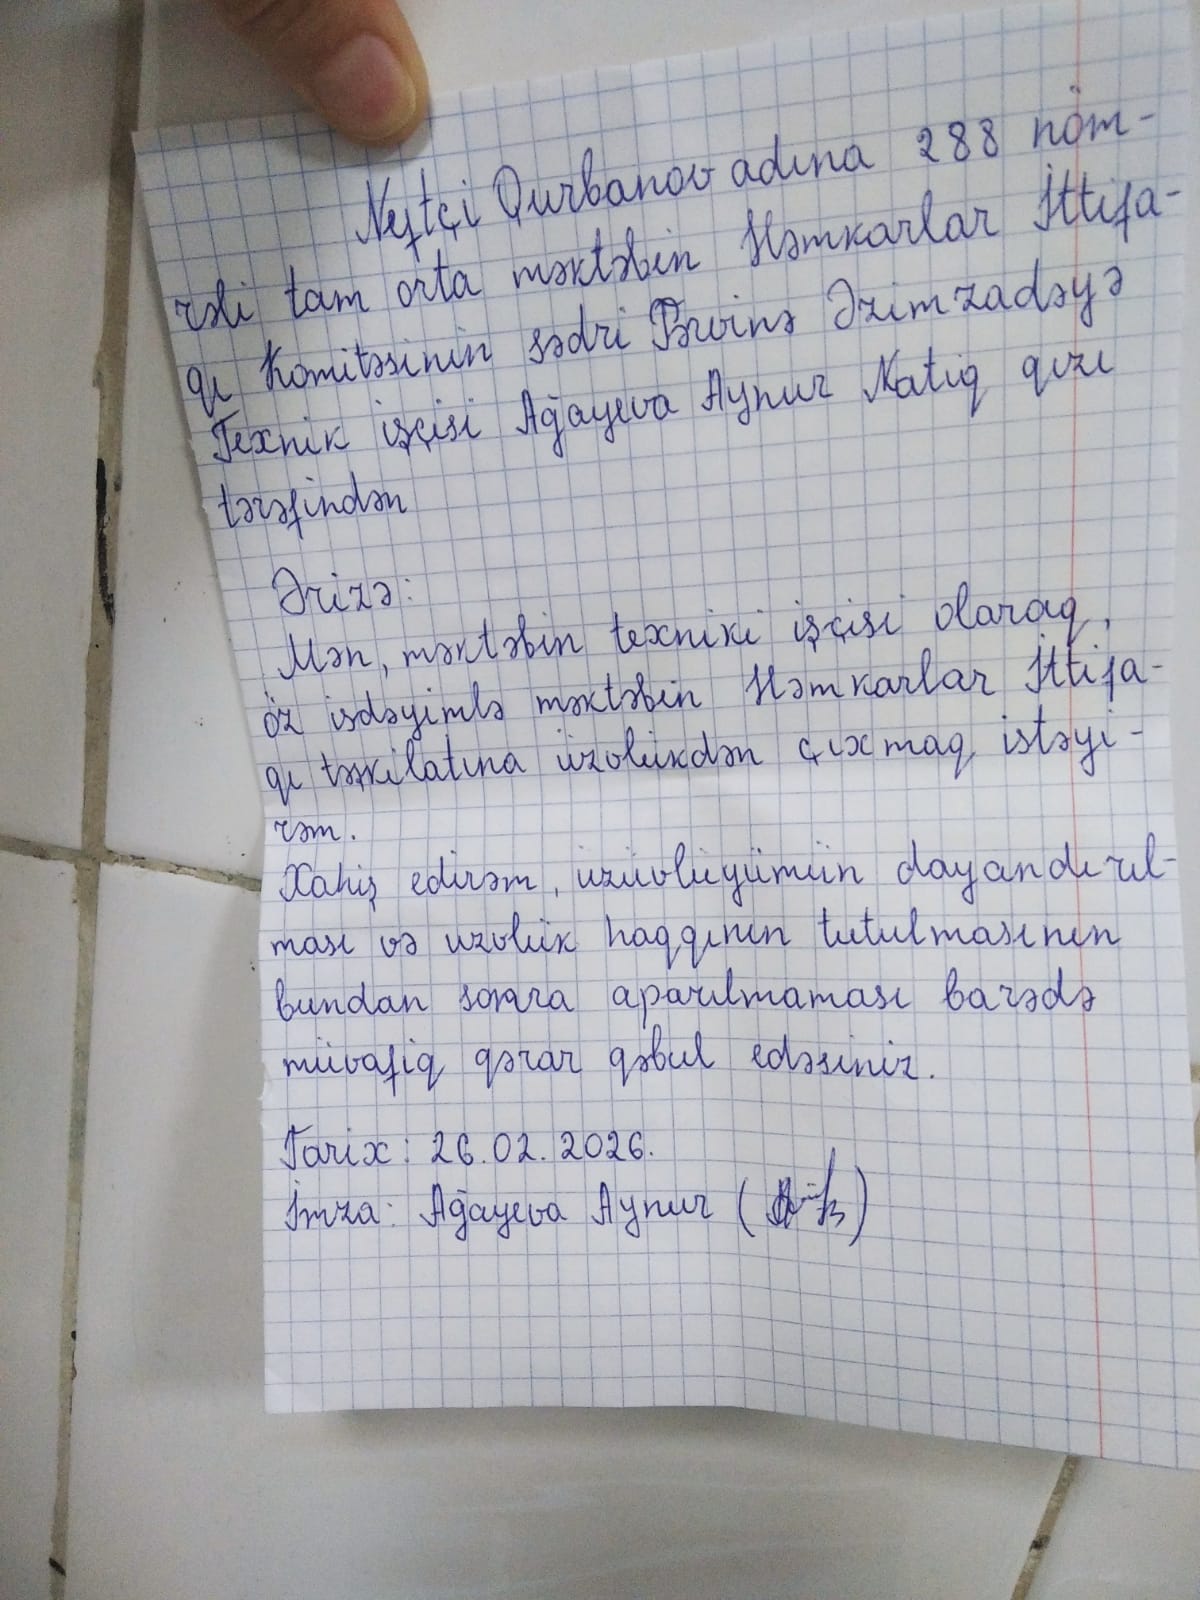 Neftçi Qurbanov adına 288 nöm-
rəli tam orta məktəbin Həmkarlar İttifa-
qı Komitəsinin sədri Pərvinə Əzimzadəyə
Texnik işçisi Ağayeva Aynur Natiq qızı
tərəfindən
Ərizə:
Mən, məktəbin texniki işçisi olaraq,
öz isdəyimlə məktəbin Həmkarlar İttifa-
qı təşkilatına üzvlükdən çıxmaq istəyi-
rəm.
Xahiş edirəm, üzüvlüyümün dayandırıl-
ması və uzvlük haqqının tutulmasının
bundan sonra aparılmaması barədə
müvafiq qərar qəbul edəsiniz.
Tarix: 26.02.2026.
İmza: Ağayeva Aynur ( )